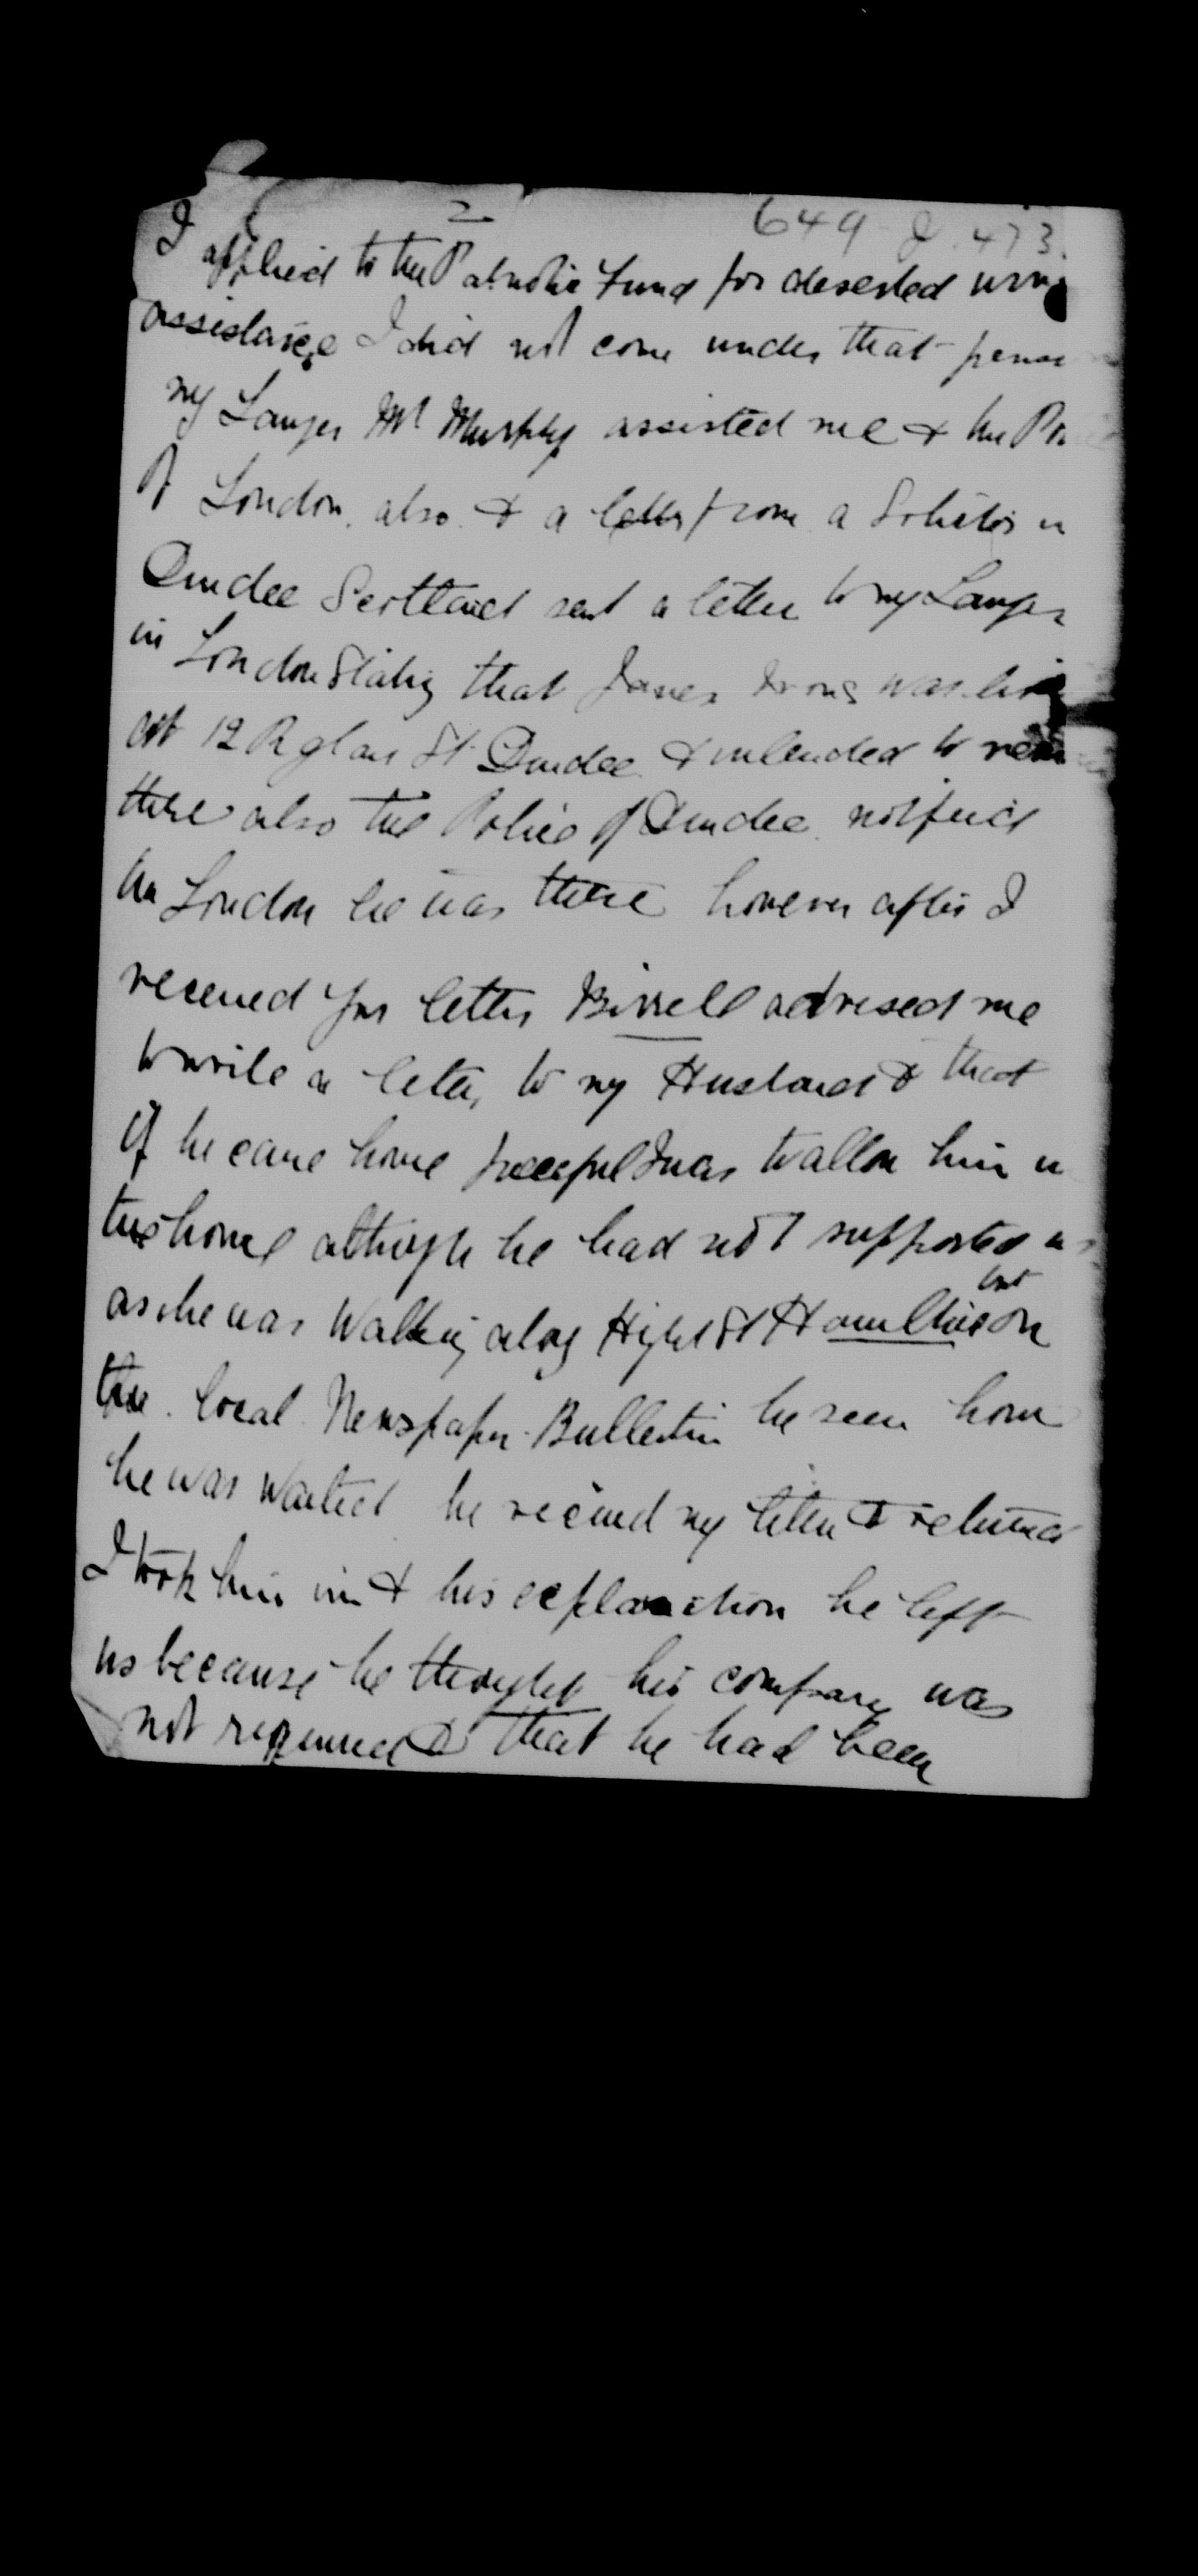 2 649-J.473.
I applied to the Patriotic Fund for deserted
assistance I did not come under that
my Lawyer Mr Murphy assisted me & the
of London also & a letter from a Solicitor
Dundee Scotland sent a letter to my Lawyer
in London Stating that James was
at 12 Raglan St. Dundee & intended to
there also the Police of Dundee notified
London he was there however after I
received yr letter Birrell advised me
to write a letter, to my Husband & that
if he came home peaceful I was to allow him
the home although he had not supported us
as he was Walking along High St Hamilton ont on
the local Newspaper Bulletin he seen how
he was Wanted he received my letter & returned
I took him in & his explanation he left
us because he thought his company was
not required & that he had been